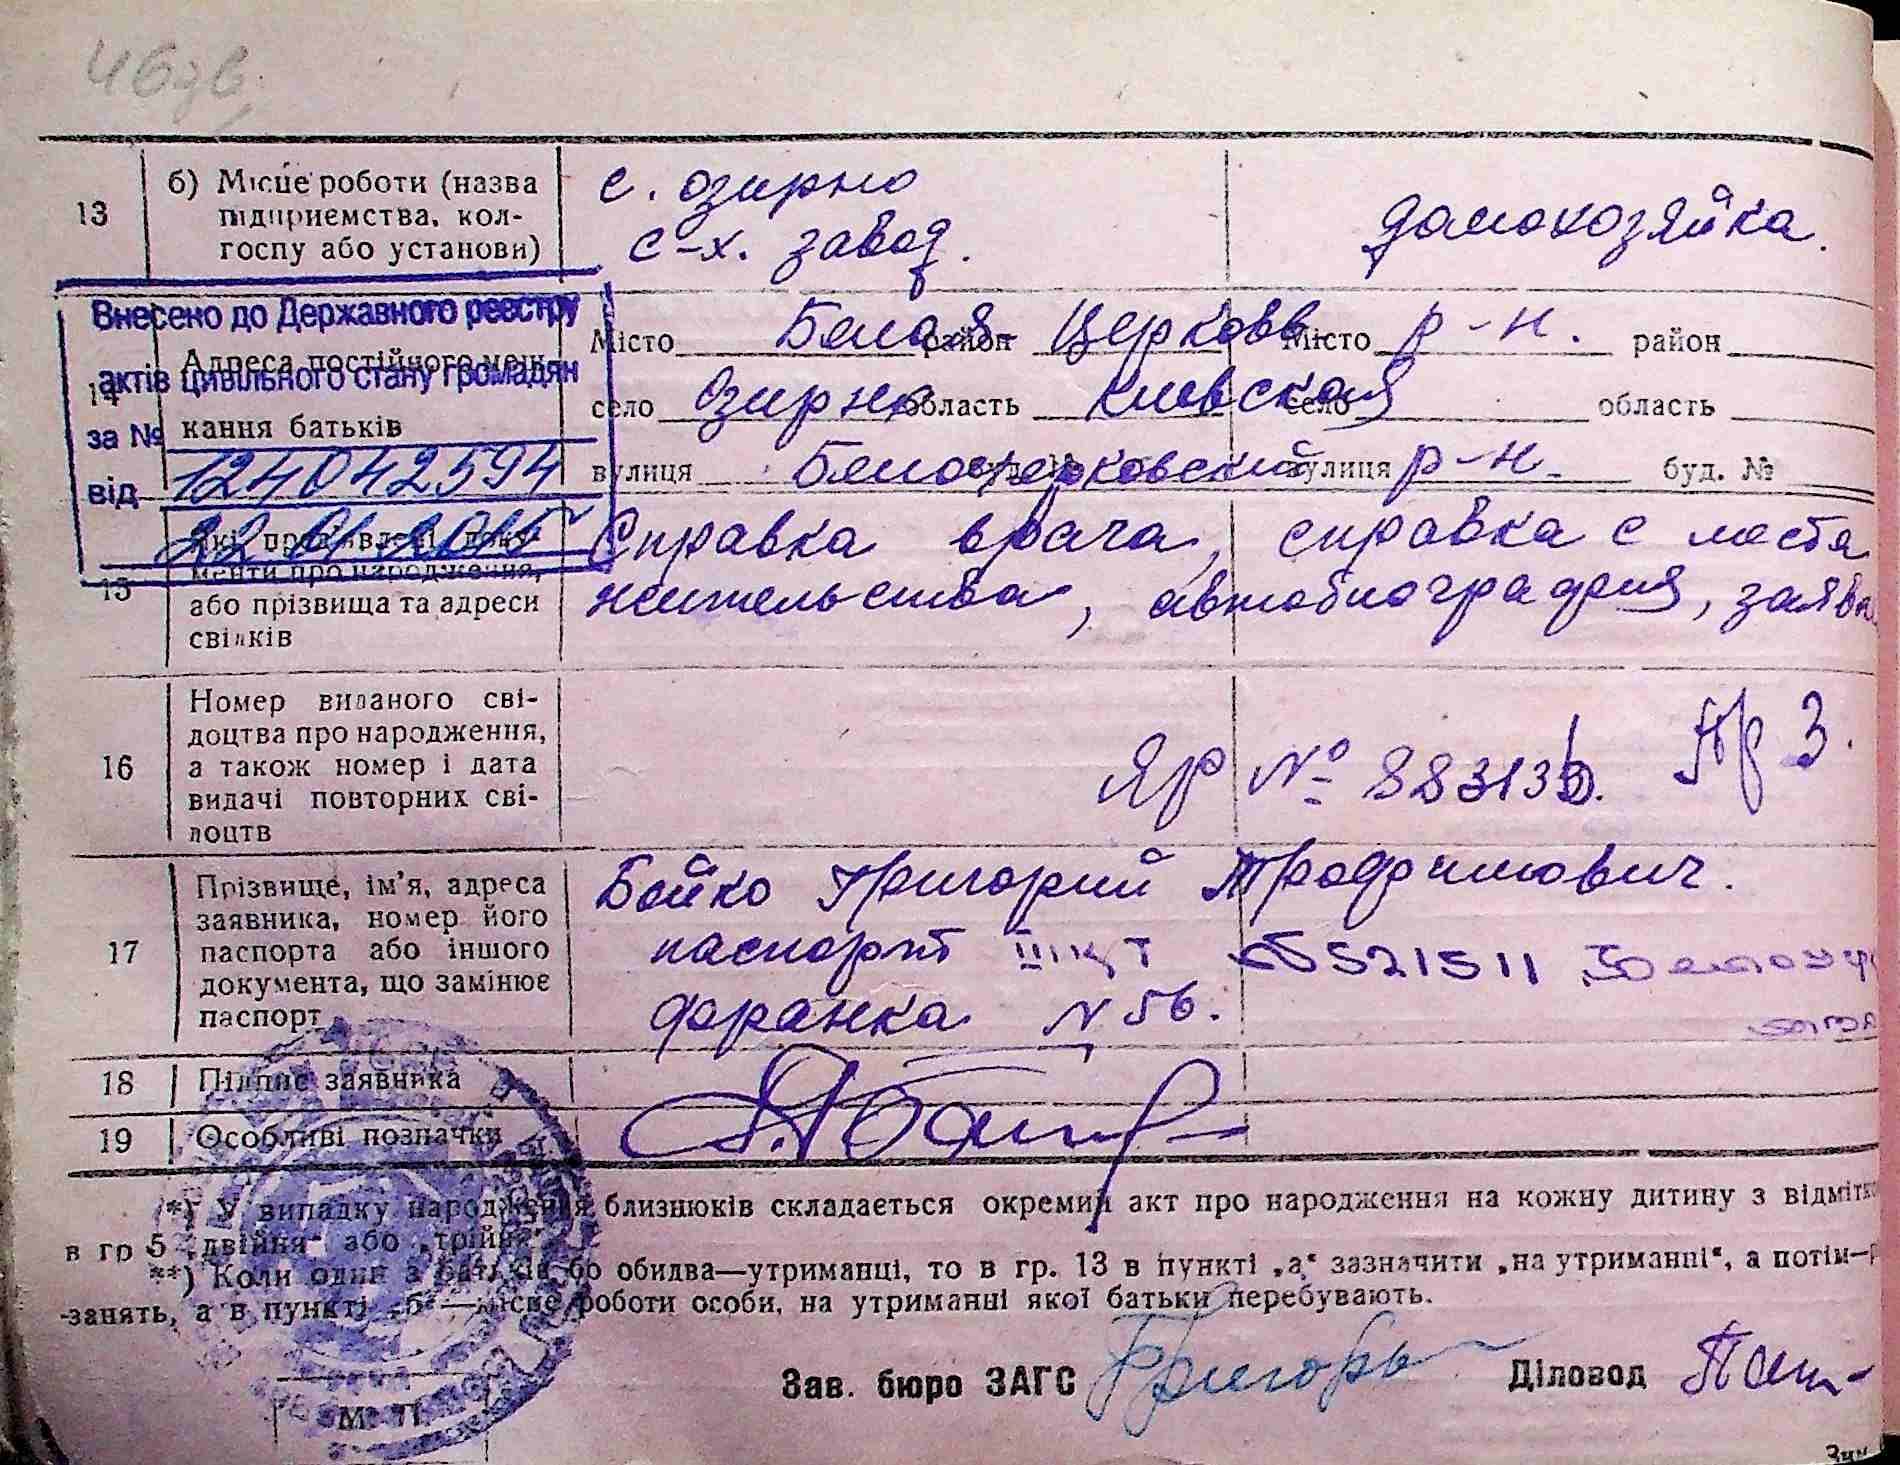 46зв
13
б) Місце роботи (назва
підприємства, кол-
госпу або установи)
с. Озирно
с-х. завод.
домохозяйка.
Внесено до Державного реєстру
актів цивільного стану громадян
за №
124042594
від
22 01 2015
14
Адреса постійного меш-
кання батьків
Місто Белая район Церковь Місто р-н. район
село Озирно область Киевская село область
вулиця Белоцерковский вулиця р-н. буд. №
15
Які пред'явлені доку-
менти про народження,
або прізвища та адреси
свідків
Справка врача, справка с места
жительства, автобиография, заявл
16
Номер виданого сві-
доцтва про народження,
а також номер і дата
видачі повторних сві-
доцтв
ЯР № 883136.
17
Прізвище, ім'я, адреса
заявника, номер його
паспорта або іншого
документа, що замінює
паспорт
Бойко Григорий Трофимович.
паспорт 521511
N 56.
18
Підпис заявника
19
Особливі позначки
*) У випадку народження близнюків складається окремий акт про народження на кожну дитину з відмітко
в гр 5 „двійня“ або „трійня“
**) Коли один з батьків або обидва—утриманці, то в гр. 13 в пункті „а“ зазначити „на утриманні“, а потім—р
-занять, а в пункті „б“—місце роботи особи, на утриманні якої батьки перебувають.
Зав. бюро ЗАГС
Діловод
М. П.